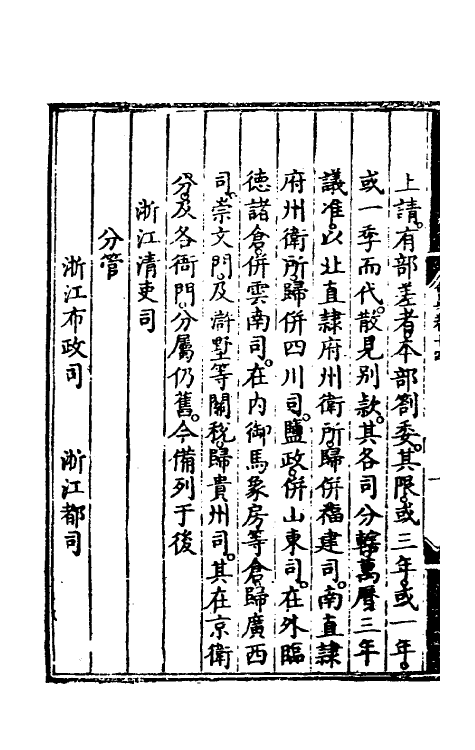 上請。有部差者。本部劄委。其限。或三年。或一年。
或一季而代。散見別款。其各司分轄。萬曆三年
議准。以北直隸府州衛所。歸併福建司。南直隸
府州衛所。歸併四川司。鹽政。併山東司。在外臨
德諸倉。併雲南司。在内御馬象房等倉。歸廣西
司。崇文門。及滸墅等關稅。歸貴州司。其在京衛
分。及各衙門。分屬仍舊。今備列于後
浙江清吏司
分管
浙江布政司 浙江都司